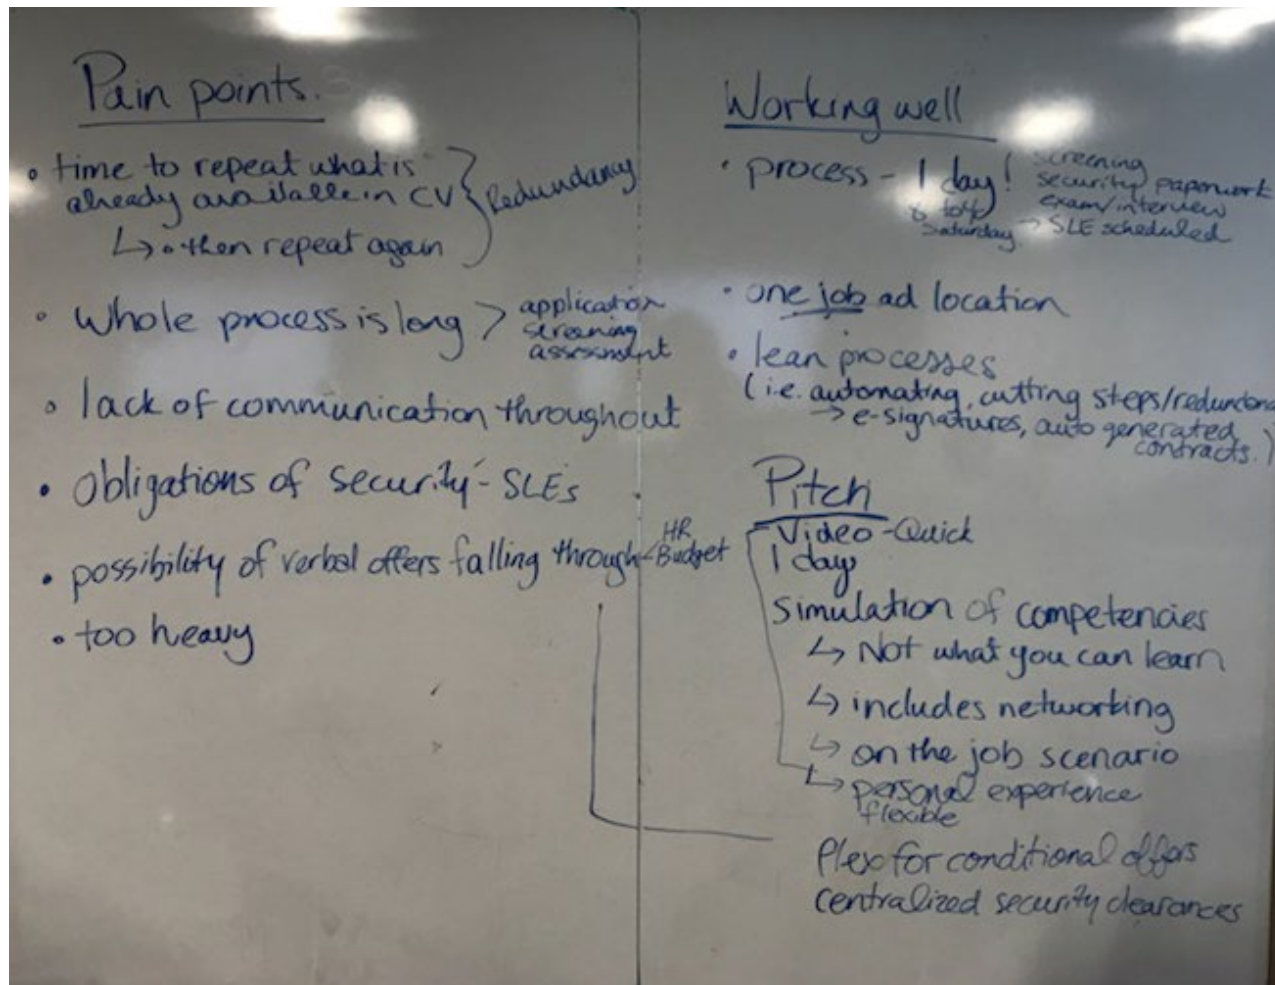 Pain points.
• time to repeat what is
already available in CV
↳ • then repeat again
Redundancy
• Whole process is long >
application
screening
assessment
• lack of communication throughout
• Obligations of security - SLEs
• possibility of verbal offers falling through <
HR
Budget
• too heavy
Working well
• process - 1 day!
Saturday → SLE scheduled
screening
security paperwork
exam/interview
• one job ad location
• lean processes
(i.e. automating, cutting steps/
→ e-signatures, auto generated
contracts.)
Pitch
Video - Quick
1 day
Simulation of competencies
↳ Not what you can learn
↳ includes networking
↳ on the job scenario
↳ personal experience
flexible
for conditional offers
centralized security clearances